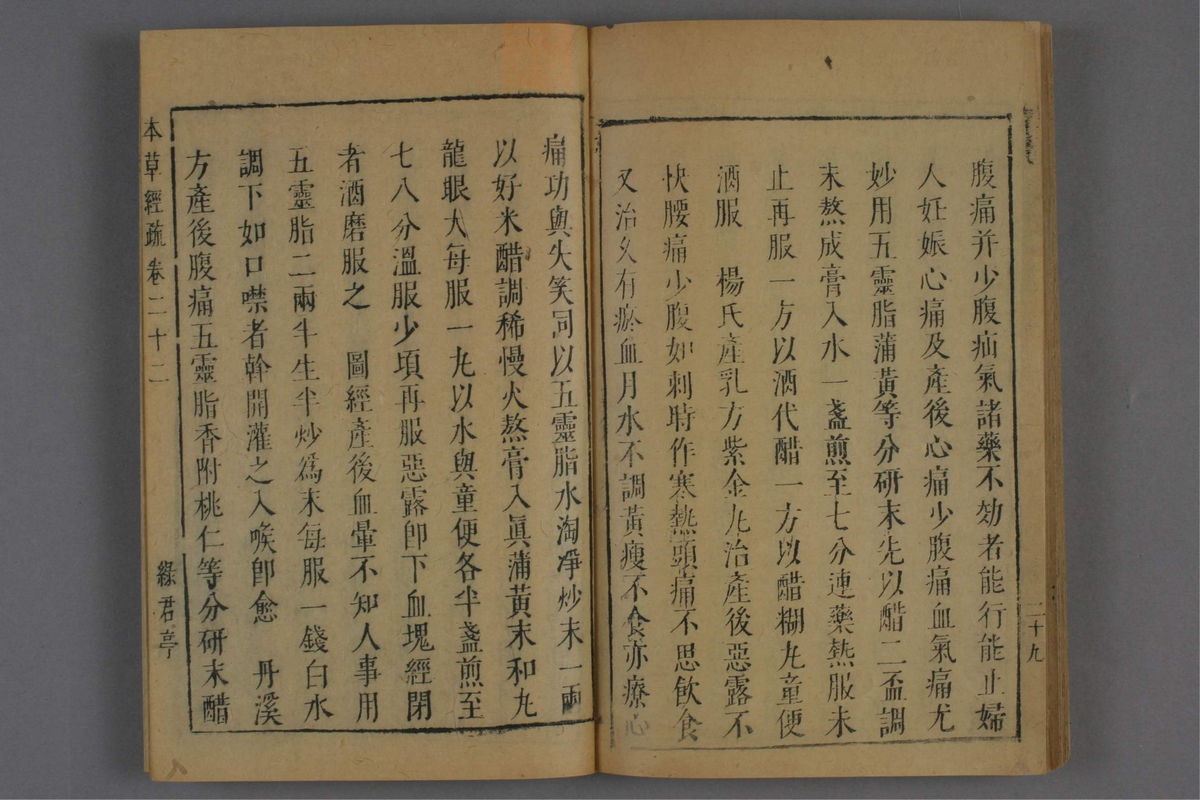 腹痛并少腹疝氣諸藥不効者能行能止婦
人妊娠心痛及產後心痛少腹痛血氣痛尤
妙用五靈脂蒲黃等分研末先以醋二盃調
末熬成膏入水一盞煎至七分連藥熱服未
止再服一方以酒代醋一方以醋糊丸童便
酒服　楊氏產乳方紫金丸治產後惡露不
快腰痛少腹如刺時作寒熱頭痛不思飲食
又治久有瘀血月水不調黃瘦不食亦療心
二十九
痛功與失笑同以五靈脂水淘凈炒末一兩
以好米醋調稀慢火熬膏入眞蒲黃末和丸
龍眼大每服一丸以水與童便各半盞煎至
七八分溫服少頃再服惡露卽下血塊經閉
者酒磨服之　圖經產後血暈不知人事用
五靈脂二兩半生半炒爲末每服一錢白水
調下如口噤者斡開灌之入喉卽愈　丹溪
方產後腹痛五靈脂香附桃仁等分研末醋
本草經疏　卷二十二
綠君亭